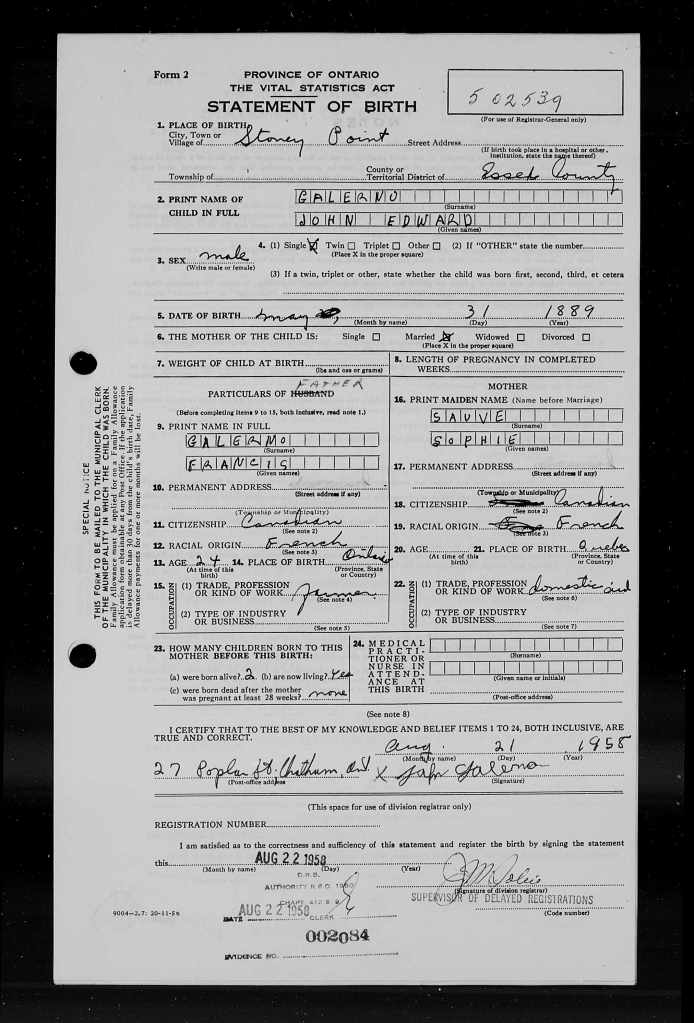 Form 2
PROVINCE OF ONTARIO
THE VITAL STATISTICS ACT
STATEMENT OF BIRTH
502539
(For use of Registrar-General only)
1. PLACE OF BIRTH
City, Town or
Village of Stoney Point Street Address
(If birth took place in a hospital or other
institution, state the name thereof)
Township of County or
Territorial District of Essex County
2. PRINT NAME OF
CHILD IN FULL
GALERNO
(Surname)
JOHN EDWARD
(Given names)
3. SEX male
(Write male or female)
4. (1) Single X Twin Triplet Other (2) If "OTHER" state the number
(Place X in the proper square)
(3) If a twin, triplet or other, state whether the child was born first, second, third, et cetera
5. DATE OF BIRTH may 31 1889
(Month by name) (Day) (Year)
6. THE MOTHER OF THE CHILD IS: Single Married X Widowed Divorced
(Place X in the proper square)
7. WEIGHT OF CHILD AT BIRTH
(lbs and ozs or grams)
8. LENGTH OF PREGNANCY IN COMPLETED
WEEKS
FATHER
PARTICULARS OF HUSBAND
(Before completing items 9 to 15, both inclusive, read note 1.)
9. PRINT NAME IN FULL
GALERMO
(Surname)
FRANCIS
(Given names)
10. PERMANENT ADDRESS
(Street address if any)
(Township or Municipality)
11. CITIZENSHIP Canadian
(See note 2)
12. RACIAL ORIGIN French
(See note 3)
13. AGE 24 14. PLACE OF BIRTH Ontario
(At time of this
birth)
(Province, State
or Country)
15. OCCUPATION
(1) TRADE, PROFESSION
OR KIND OF WORK farmer
(See note 4)
(2) TYPE OF INDUSTRY
OR BUSINESS
(See note 5)
MOTHER
16. PRINT MAIDEN NAME (Name before Marriage)
SAUVE
(Surname)
SOPHIE
(Given names)
17. PERMANENT ADDRESS
(Street address if any)
(Township or Municipality)
18. CITIZENSHIP Canadian
(See note 2)
19. RACIAL ORIGIN French
(See note 3)
20. AGE 21. PLACE OF BIRTH Quebec
(At time of this
birth)
(Province, State
or Country)
22. OCCUPATION
(1) TRADE, PROFESSION
OR KIND OF WORK domestic aid
(See note 6)
(2) TYPE OF INDUSTRY
OR BUSINESS
(See note 7)
23. HOW MANY CHILDREN BORN TO THIS
MOTHER BEFORE THIS BIRTH:
(a) were born alive? 2 (b) are now living? Yes
(c) were born dead after the mother
was pregnant at least 28 weeks? none
24. MEDICAL
PRACTI-
TIONER OR
NURSE IN
ATTEND-
ANCE AT
THIS BIRTH
(Surname)
(Given name or initials)
(Post-office address)
(See note 8)
I CERTIFY THAT TO THE BEST OF MY KNOWLEDGE AND BELIEF ITEMS 1 TO 24, BOTH INCLUSIVE, ARE
TRUE AND CORRECT.
Aug. 21 1958
(Month by name) (Day) (Year)
27 Poplar St. Chatham, Ont. X John Galerno
(Post-office address) (Signature)
(This space for use of division registrar only)
REGISTRATION NUMBER
I am satisfied as to the correctness and sufficiency of this statement and register the birth by signing the statement
this AUG 22 1958
(Month by name) (Day) (Year)
D.R.B.
AUTHORITY R.S.O. 1950
CHAPT 412 S 9
DATE AUG 22 1958 CLERK
(Signature of division registrar)
SUPERVISOR OF DELAYED REGISTRATIONS
(Code number)
002084
EVIDENCE NO.
SPECIAL NOTICE
THIS FORM TO BE MAILED TO THE MUNICIPAL CLERK
OF THE MUNICIPALITY IN WHICH THE CHILD WAS BORN.
Family Allowance must be applied for on a Family Allowance
application form obtainable at any Post Office. If the application
is delayed more than 30 days from the child's birth date, Family
Allowance payments for one or more months will be lost.